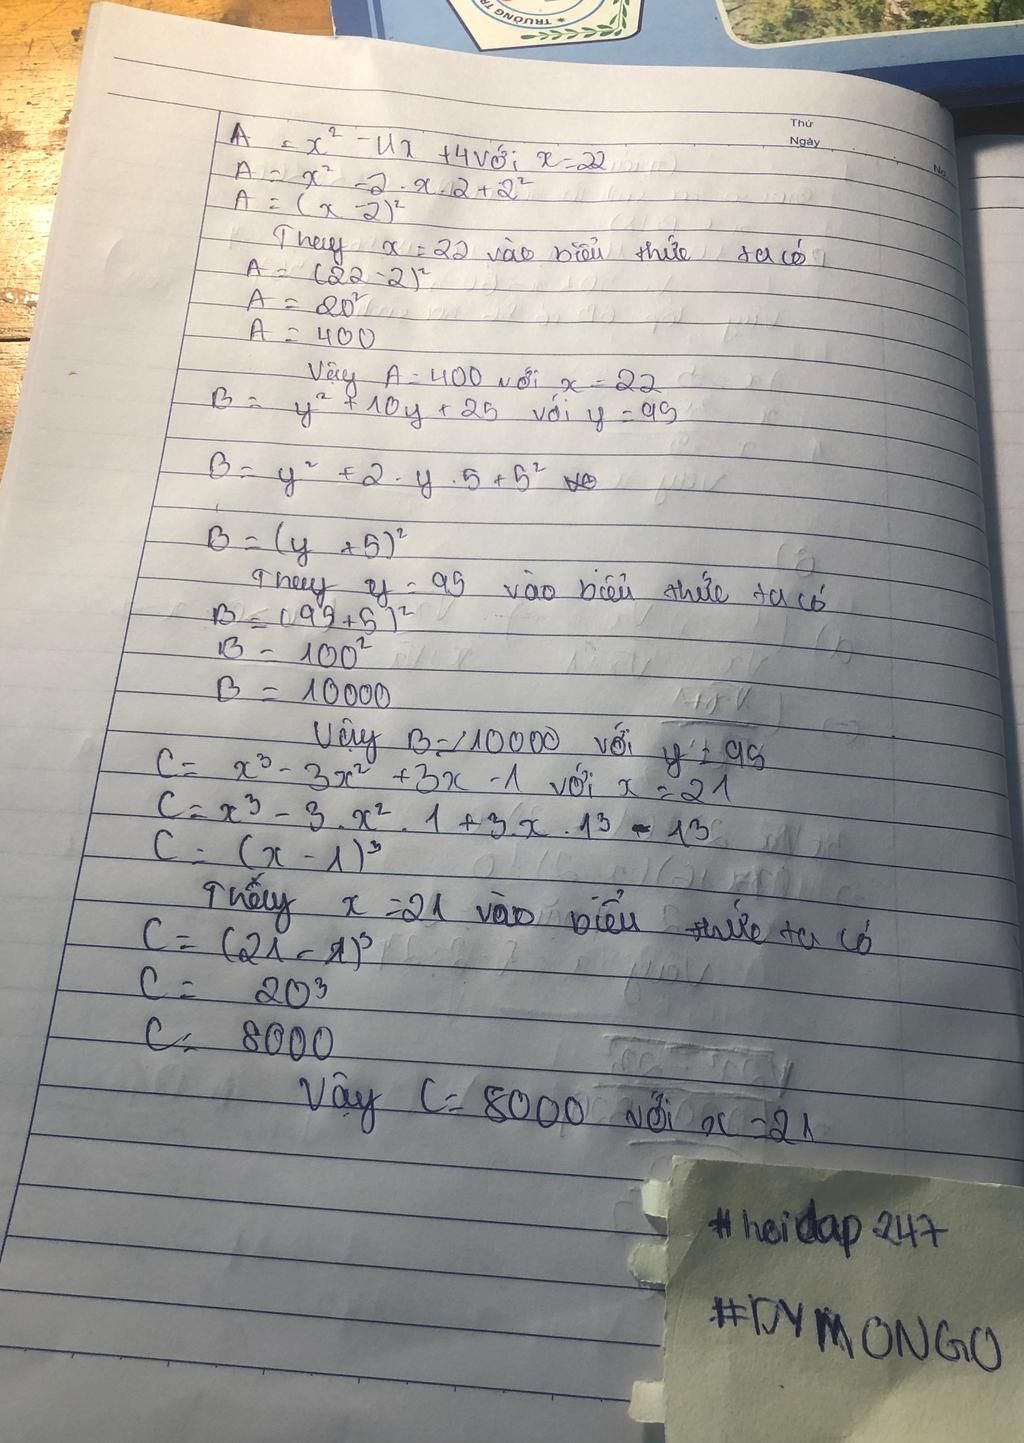 TRƯỜNG TR
Thứ
Ngày
No.
A = x² - 4x + 4 với x = 22
A = x² - 2 . x . 2 + 2²
A = (x - 2)²
Thay x = 22 vào biểu thức ta có
A = (22 - 2)²
A = 20²
A = 400
Vậy A = 400 với x = 22
B = y² + 10y + 25 với y = 95
B = y² + 2 . y . 5 + 5²
B = (y + 5)²
Thay y = 95 vào biểu thức ta có
B = (95 + 5)²
B = 100²
B = 10000
Vậy B = 10000 với y = 95
C = x³ - 3x² + 3x - 1 với x = 21
C = x³ - 3 . x² . 1 + 3 . x . 1³ - 1³
C = (x - 1)³
Thấy x = 21 vào biểu thức ta có
C = (21 - 1)³
C = 20³
C = 8000
Vậy C = 8000 với x = 21
#hoidap247
#DYMONGO